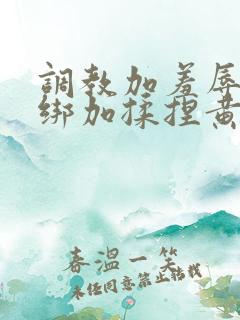 調教加羞辱
绑加揉捏黄
春溫一笑
未任同意禁止转载